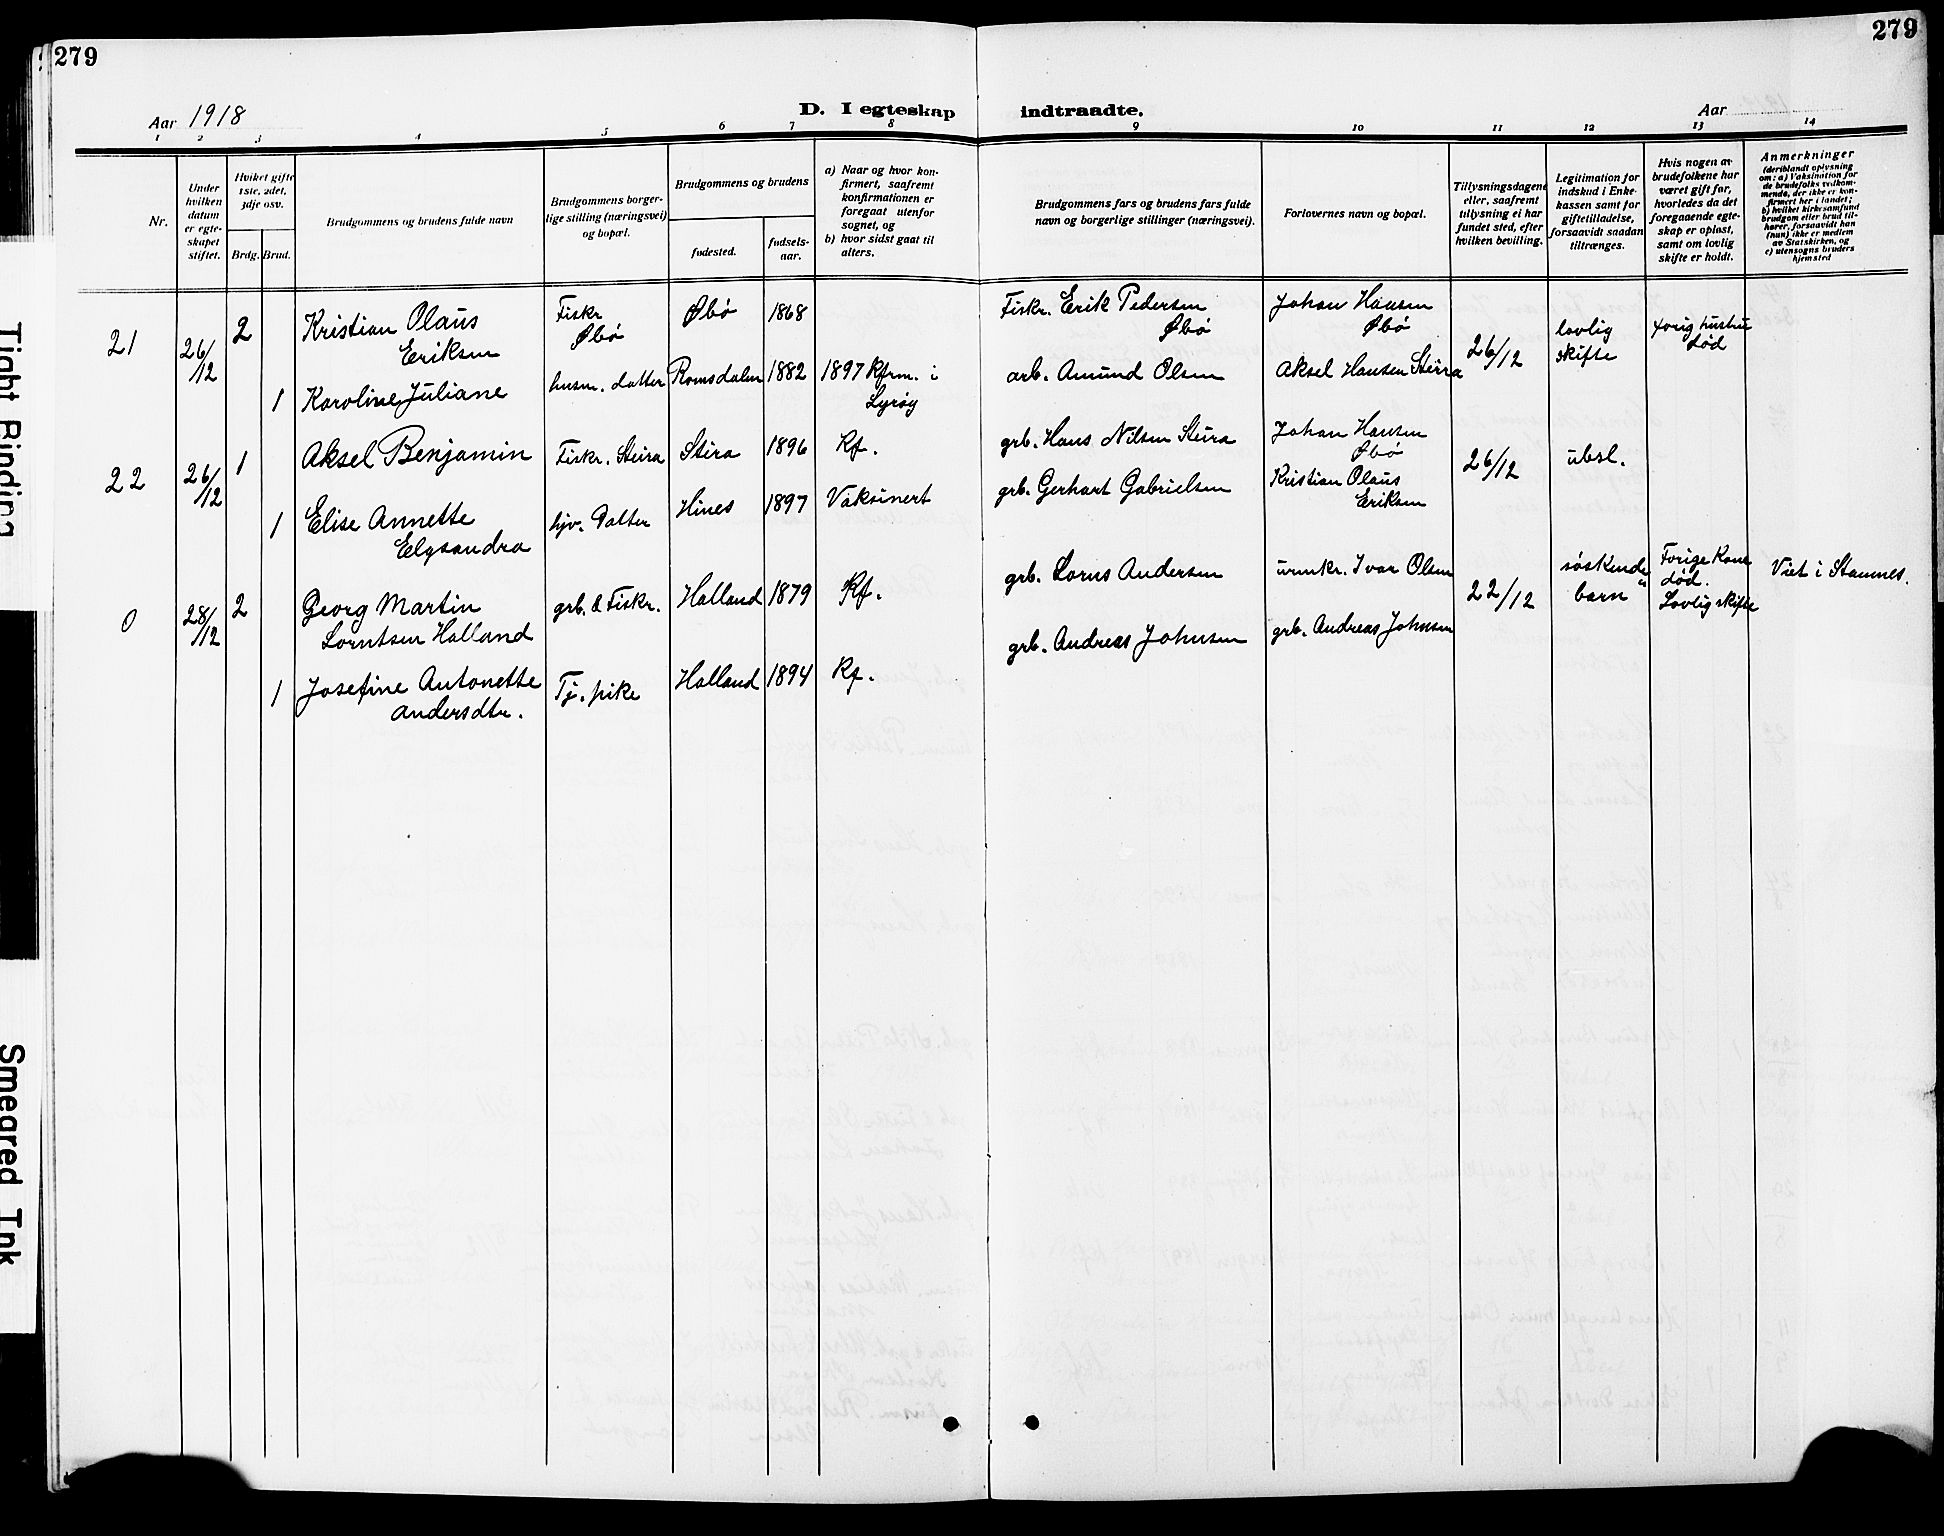 279
279
Aar 1918
D. I egteskap indtraadte.
Aar
1 2 3 4 5 6 7 8 9 10 11 12 13 14
Nr.
Under
hvilken
datum
er egte-
skapet
stiftet.
Hvilket gifte
1ste, 2det,
3dje osv.
Brdg. Brud.
Brudgommens og brudens fulde navn
Brudgommens borger-
lige stilling (næringsvei)
og bopæl.
Brudgommens og brudens
fødested.
fødsels-
aar.
a) Naar og hvor kon-
firmert, saafremt
konfirmationen er
foregaat utenfor
sognet, og
b) hvor sidst gaat til
alters.
Brudgommens fars og brudens fars fulde
navn og borgerlige stillinger (næringsvei).
Forlovernes navn og bopæl.
Tillysningsdagene
eller, saafremt
tillysning ei har
fundet sted, efter
hvilken bevilling.
Legitimation for
indskud i Enke-
kassen samt for
giftetilladelse,
forsaavidt saadan
tiltrænges.
Hvis nogen av
brudefolkene har
været gift før,
hvorledes da det
foregaaende egte-
skap er opløst,
samt om lovlig
skifte er holdt.
Anmerkninger
(deriblandt oplysning
om: a) Vaksination for
de brudefolks vedkom-
mende, der ikke er kon-
firmert her i landet;
b) hvilket kirkesamfund
brudgom eller brud til-
hører, forsaavidt han
(hun) ikke er medlem
av Statskirken, og
c) utensogns bruders
hjemsted
21 26/12 2 Kristian Olaus Eriksen Fiskr Øbø Øbø 1868 Fiskr. Erik Pedersen Øbø Johan Hansen Øbø 26/12 lovlig skifte forig hustru død
1 Karoline Juliane husm. datter Romsdalen 1882 1897 Kfrm. i arb. Amund Olsen Aksel Hansen Steira
22 26/12 1 Aksel Benjamin Fiskr. Steira Stira 1896 Kf. grb. Hans Nilsen Steira Johan Hansen Øbø 26/12 ubsl.
1 Elise Annette Elysandra hjv. Datter Hines 1897 Vaksinert grb. Gerhart Gabrielsen Kristian Olaus Eriksen
0 28/12 2 Georg Martin Lorntsen Halland grb. & Fiskr. Halland 1879 Kf. grb. Lorns Andersen urmkr. Ivar Olsen 22/12 søskende barn Forige Kone død. Lovlig skifte Viet i Stamnes.
1 Josefine Antonette Andersdtr. Tj. pike Halland 1894 Kf. grb. Andreas Johnsen grb. Andreas Johnsen
Tight Binding
Smeared Ink